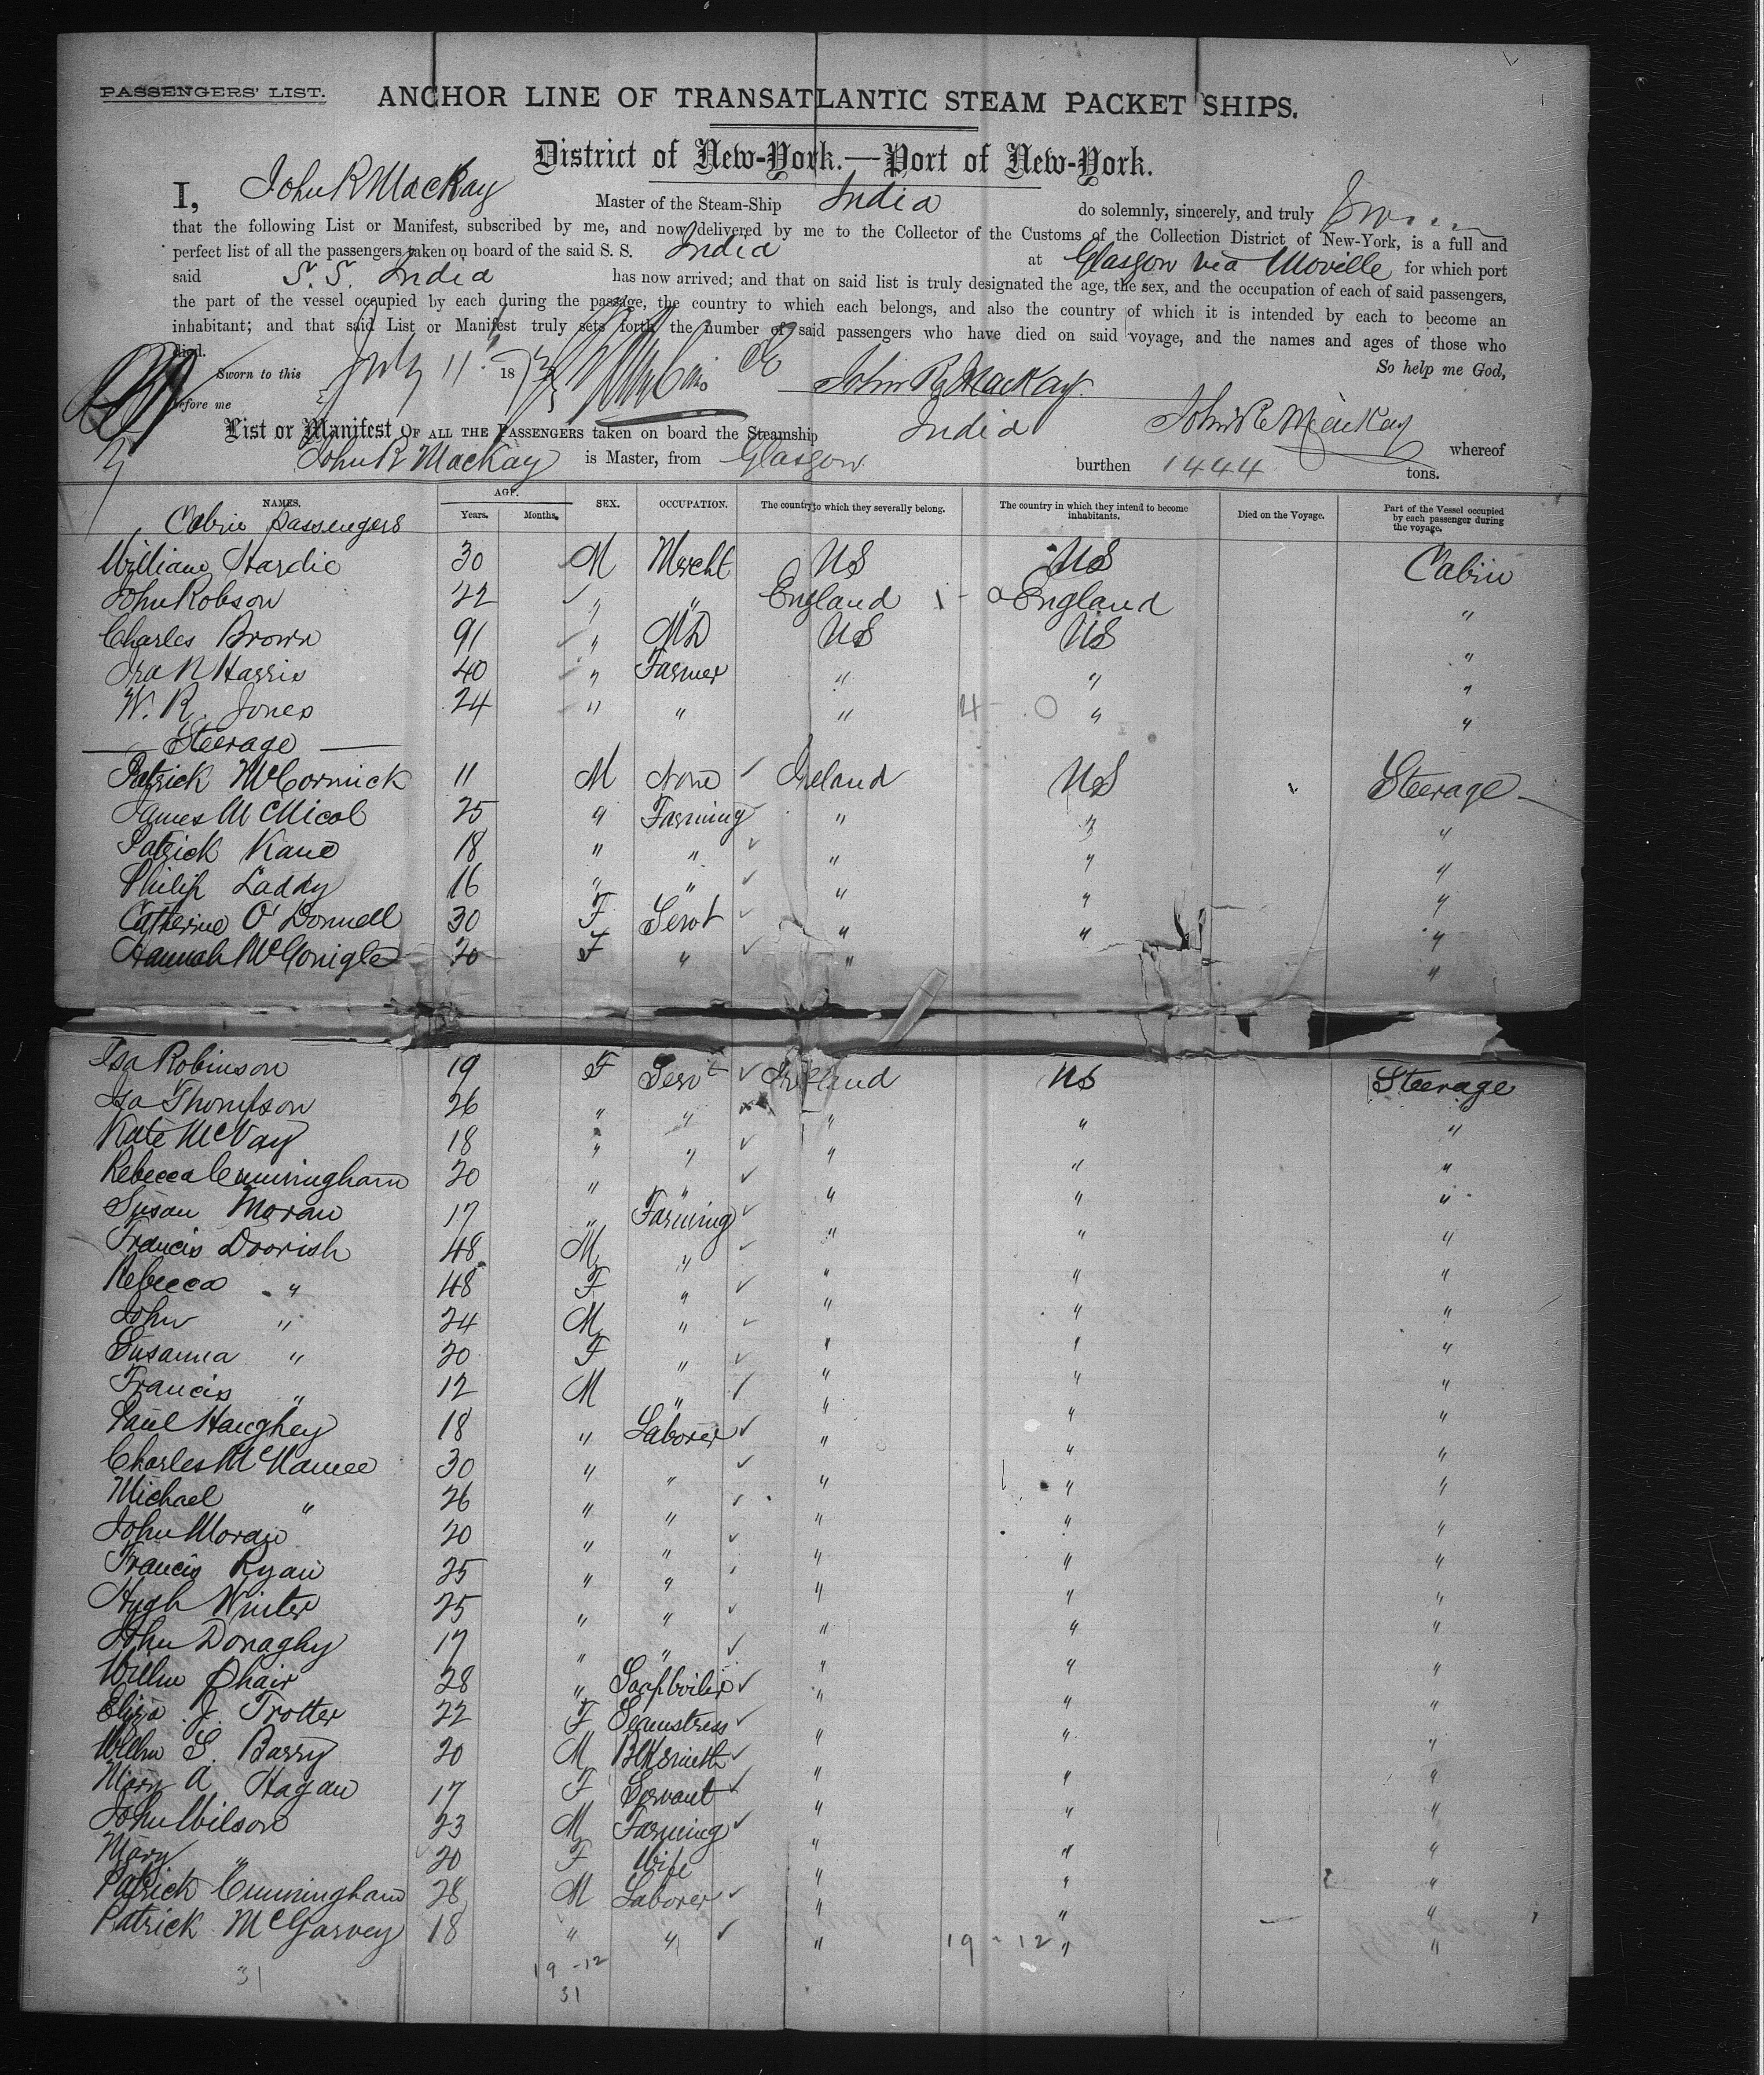 PASSENGERS' LIST.
ANCHOR LINE OF TRANSATLANTIC STEAM PACKET SHIPS.
District of New-York.—Port of New-York.
I, John R MacKay Master of the Steam-Ship India do solemnly, sincerely, and truly
that the following List or Manifest, subscribed by me, and now delivered by me to the Collector of the Customs of the Collection District of New-York, is a full and
perfect list of all the passengers taken on board of the said S. S. India at Glasgow via Moville for which port
said S. S. India has now arrived; and that on said list is truly designated the age, the sex, and the occupation of each of said passengers,
the part of the vessel occupied by each during the passage, the country to which each belongs, and also the country of which it is intended by each to become an
inhabitant; and that said List or Manifest truly sets forth the number of said passengers who have died on said voyage, and the names and ages of those who
died. So help me God,
Sworn to this July 11 18 John R MacKay
before me
List or Manifest OF ALL THE PASSENGERS taken on board the Steamship India John R MacKay whereof
John R MacKay is Master, from Glasgow burthen 1444 tons.
NAMES. AGE. Years. Months. SEX. OCCUPATION. The country to which they severally belong. The country in which they intend to become inhabitants. Died on the Voyage. Part of the Vessel occupied by each passenger during the voyage.
Cabin passengers
William Hardie 30 M Mercht US US Cabin
John Robson 22 " " England 1 - 0 England "
Charles Brown 91 " MD US US "
Ira N Harris 40 " Farmer " " "
W. R. Jones 24 " " " 4 - 0 " "
Steerage
Patrick McCormick 11 M None Ireland US Steerage
James McNicol 25 " Farming " " "
Patrick Kane 18 " " " " "
Philip Laddy 16 " " " " "
Catherine O'Donnell 30 F Servt " " "
Hannah McGonigle 20 F " " "
Isa Robinson 19 F Servt Ireland US Steerage
Isa Thompson 26 " " " " "
Kate McVay 18 " " " " "
Rebecca Cunningham 20 " " " " "
Susan Moran 17 " Farming " " "
Francis Doorish 48 M " " " "
Rebecca " 48 F " " " "
John " 24 M " " " "
Susanna " 20 F " " " "
Francis " 12 M " " " "
Paul Haughey 18 " Laborer " " "
Charles McNamee 30 " " " " "
Michael " 26 " " " " "
John Moran 20 " " " " "
Francis Ryan 25 " " " " "
Hugh Winter 25 " " " " "
John Donaghy 17 " " " " "
Willm Phair 28 " Soapboiler " " "
Eliza J. Trotter 22 F Seamstress " " "
Willm S. Barry 20 M Blksmith " " "
Mary A Hagan 17 F Servant " " "
John Wilson 23 M Farming " " "
Mary " 20 F Wife " " "
Patrick Cunningham 28 M Laborer " " "
Patrick McGarvey 18 " " " 19 - 12 " "
31 19 - 12
31